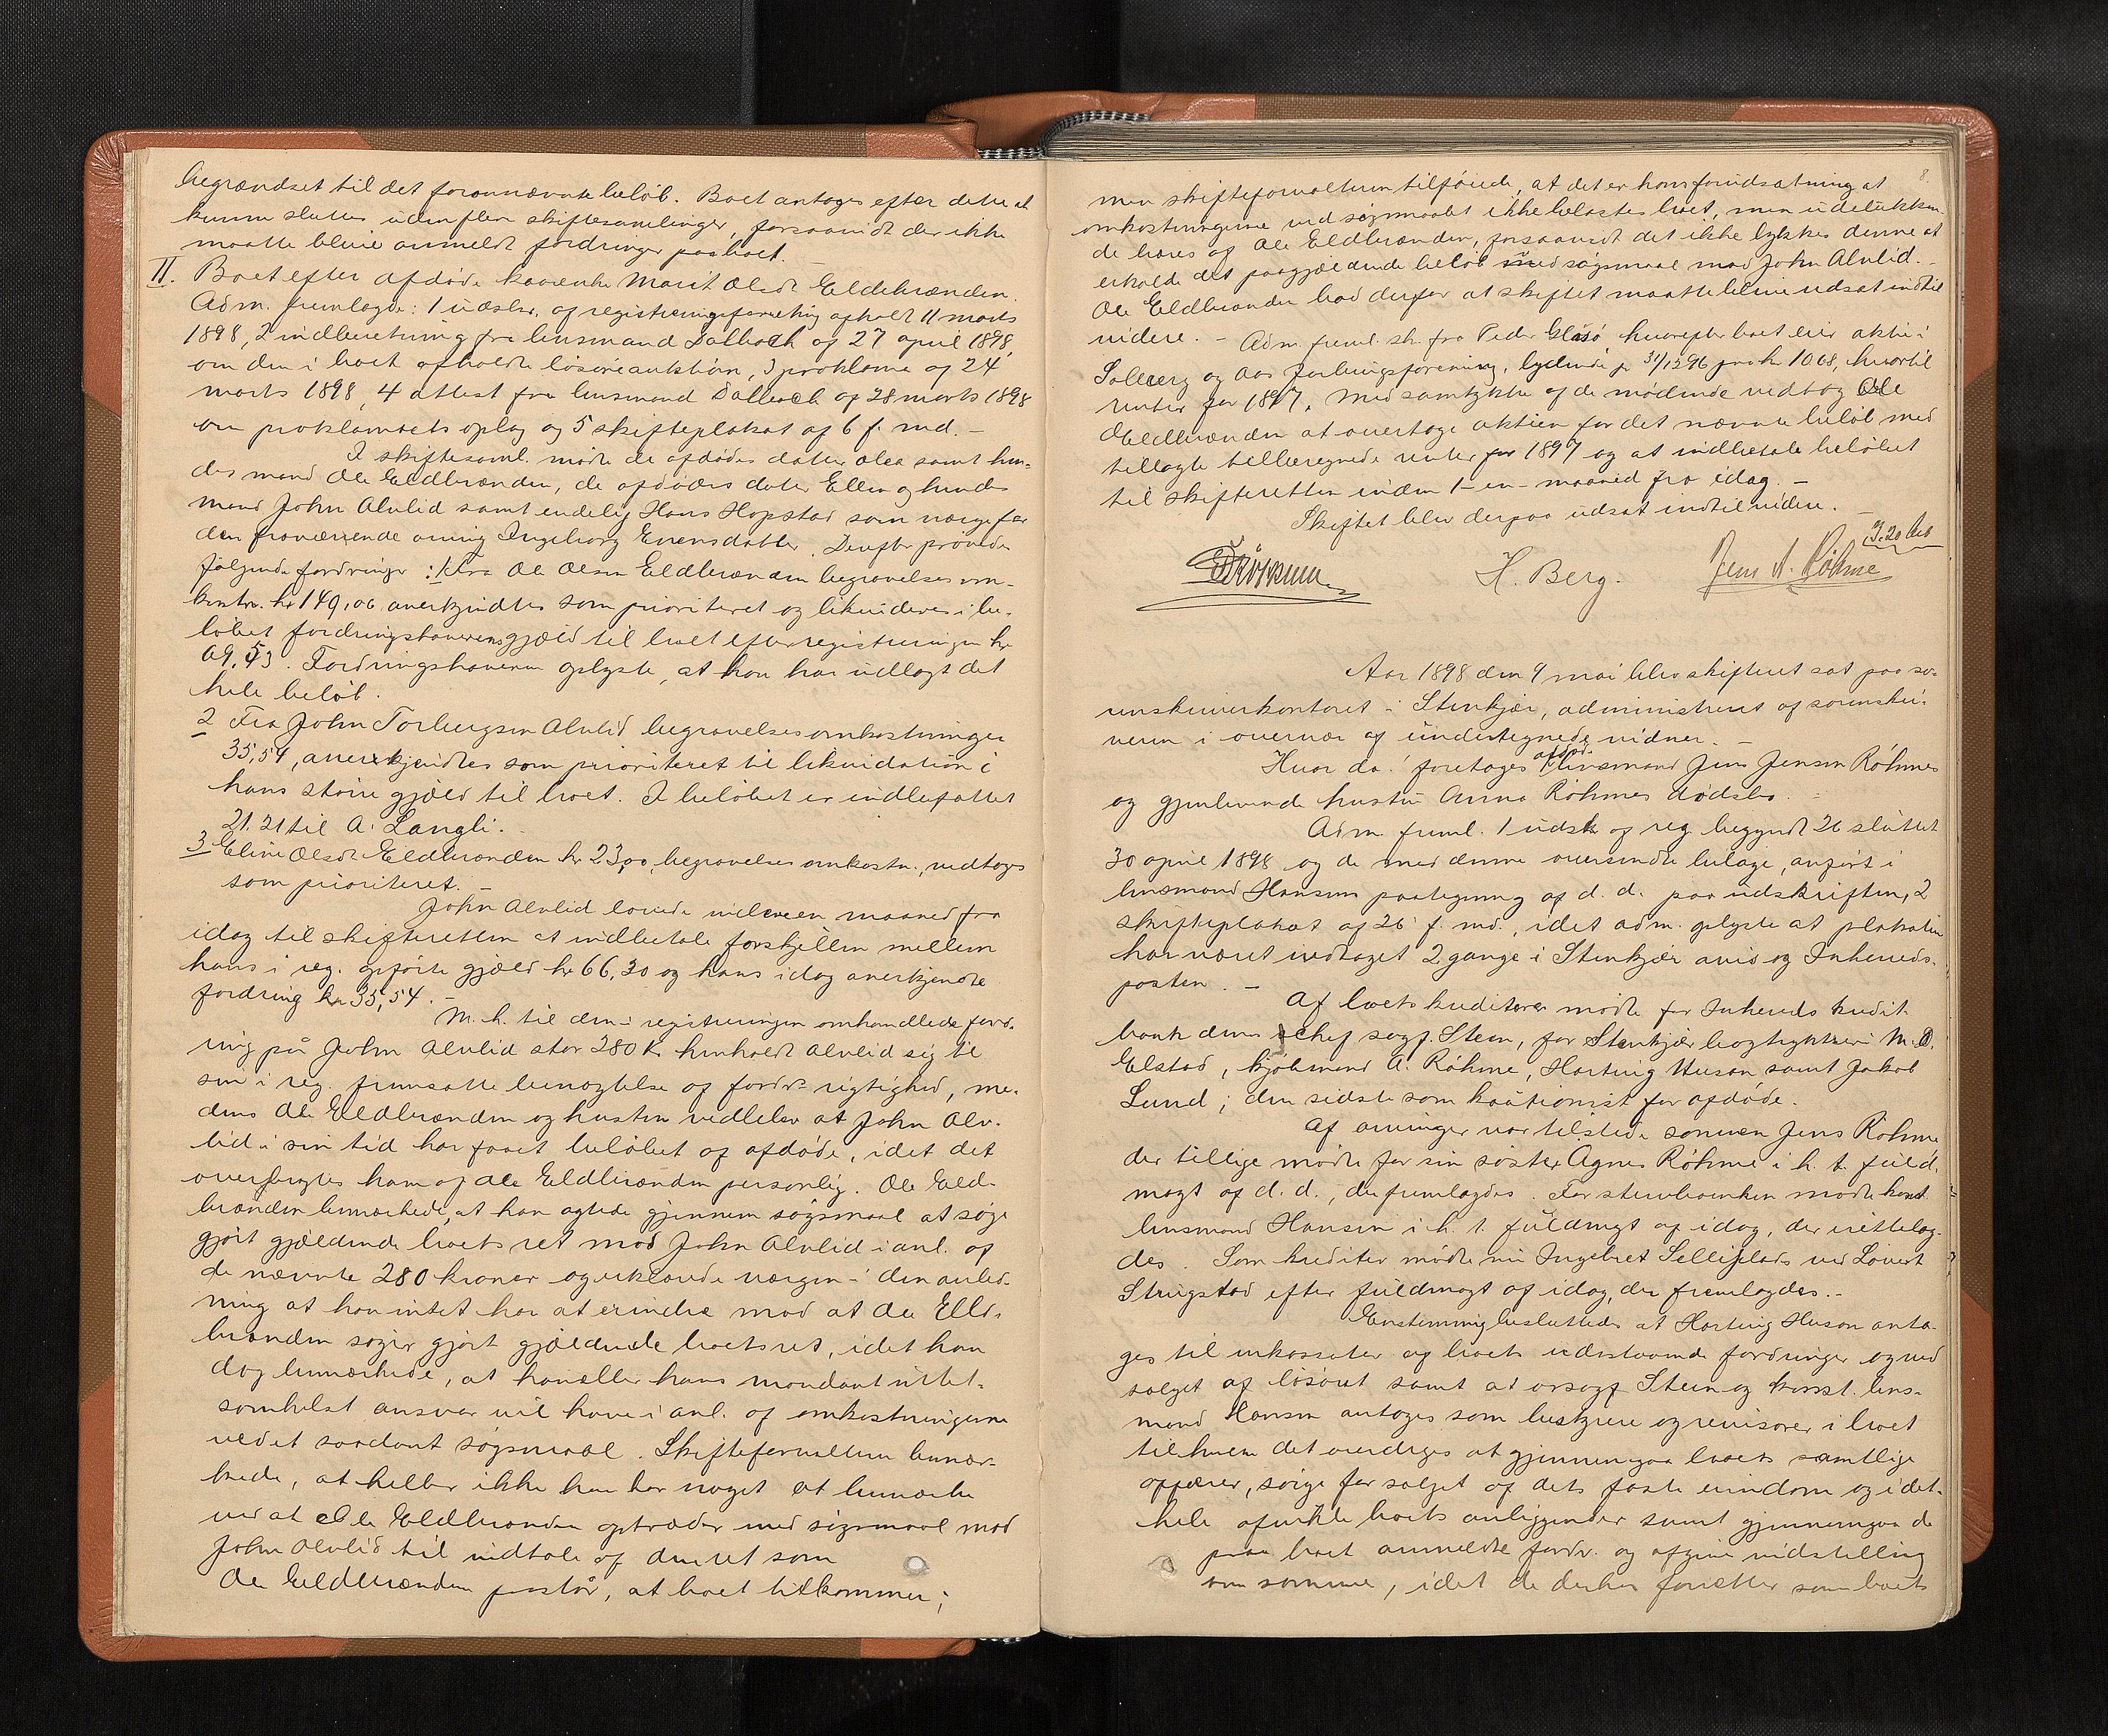 begrændset til det forannævnte beløb. Boet antoges efter dette at
kunne sluttes uden flere skiftesamlinger, forsaavidt der ikke
maatte blive anmeldt fordringer paa boet. -
II. Boet efter afdøde kaarenke Marit Olsdt Eldebrænden.
Adm. fremlagde: 1 udskr. af registreringsforretning afholdt 11 marts
1898, 2 indberetning fra lensmand Dalback af 27 april 1898,
om den i boet afholdte løsøreauktion, 3 proklama af 24
marts 1898, 4 attest fra lensmand Dalback af 28 marts 1898
om proklamaets oplæg og 5 skifteplakat af 6 f. md. -
I skiftesaml. mødte de afdødes datter Olea samt hen-
des mand Ole Eldbrænden, de afdødes datter Ellen og hendes
mand John Alvlid samt endelig Hans Hopstad som værge for
den fraværende arving Ingeborg Evensdatter. Derefter prøvedes
følgende fordringer: 1 Fra Ole Olsen Eldbrænden begravelsesom-
kostn. kr 149,06 anerkjendtes som prioriteret og likvideres i be-
løbet fordringshaverens gjæld til boet efter registreringen kr
69,53. Fordringshaveren oplyste, at han har udlagt det
hele beløb.
2 Fra John Torbergsen Alvlid begravelsesomkostninger
35,54, anerkjendtes som prioriteret til likvidation i
hans større gjæld til boet. I beløbet er indbefattet
21.21 til A. Langli.
3 Eline Olsdt Eldbrænden kr 23,00, begravelsesomkostn., vedtoges
som prioriteret. -
John Alvlid lovede inden een maaned fra
idag til skifteretten at indbetale forskjellen mellem
hans i reg. opførte gjæld kr 66,30 og hans idag anerkjendte
fordring kr 35,54. -
M. h. til den i registreringen omhandlede ford-
ring på John Alvlid stor 280 kr. henholdt Alvlid sig til
sin i reg. fremsatte benægtelse af fordr. rigtighed, me-
dens Ole Eldbrænden og hustru vedblev at John Alv-
lid i sin tid har faaet beløbet af afdøde, idet det
overbragtes ham af Ole Eldbrænden personlig. Ole Eld-
brænden bemærkede, at han agtede gjennem søgsmaal at søge
gjort gjældende boets ret mod John Alvlid i anl. af
de nævnte 280 kroner og erklærede værgen i den anled-
ning at han intet har at erindre mod at Ole Eld-
brænden søger gjort gjældende boets ret, idet han
dog bemærkede, at han eller hans mandant intet-
somhelst ansvar vil have i anl. af omkostningerne
ved et saadant søgsmaal. Skifteforvalteren bemær-
kede, at heller ikke han har noget at bemærke
ved at Ole Eldbrænden optræder med søgsmaal mod
John Alvlid til indtale af den ret som
Ole Eldbrænden paastår, at boet tilkommer;
8.
men skifteforvalteren tilføiede, at det er hans forudsætning at
omkostningerne ved søgsmaalet ikke belastes boet, men udelukken-
de bæres af Ole Eldbrænden, forsaavidt det ikke lykkes denne at
erholde det paagjældende beløb ved søgsmaal mod John Alvlid. -
Ole Eldbrænden bad derfor at skiftet maatte blive udsat indtil
videre. - Adm. freml. skr. fra Peder Gløsø hvorefter boet eier aktie i
Solberg og Aas forbrugsforening, lydende pr 31/12 96 paa kr 10.68, hvortil
renter for 1897. Med samtykke af de mødende vedtog Ole
Eldbrænden at overtage aktien for det nævnte beløb med
tillagte tilberegnede renter for 1897 og at indbetale beløbet
til skifteretten inden 1 - en - maaned fra idag. -
Skiftet blev derpaa udsat indtil videre. -
H. Berg. Jens A. Røhme
Aar 1898 den 9 mai blev skifteret sat paa so-
renskriverkontoret i Stenkjær, administreret af sorenskri-
veren i overvær af undertegnede vidner. -
Hvor da: foretoges afdøde lensmand Jens Jensen Røhmes
og gjenlevende hustru Anna Røhmes dødsbo. -
Adm. freml. 1 udskr af reg. begyndt 26 sluttet
30 april 1898 og de med denne oversendte bilage, anført i
lensmand Hansens paategning af d. d. paa udskriften, 2
skifteplakat af 26 f. md., idet adm. oplyste at plakaten
har været indtaget 2 gange i Stenkjær avis og Inhereds-
posten. -
Af boets kreditorer mødte for Inhereds kredit-
bank dens chef sagf. Steen, for Stenkjær bogtrykkeri M. O.
Elstad, kjøbmand A. Røhme, Harting Huson samt Jakob
Lund; den sidste som kautionist for afdøde.
Af arvinger var tilstede sønnen Jens Røhme
der tillige mødte for sin søster Agnes Røhme i h. t. fuld-
magt af d. d., der fremlagdes. For sterboenken mødte konst.
lensmand Hansen i h. t. fuldmgt af idag, der irettelag-
des. Som kreditor mødte nu Ingebret Selliplads ved Lovert
Strugstad efter fuldmagt af idag, der fremlagdes. -
Enstemmig besluttedes at Harting Huson anta-
ges til inkassator af boets udestaaende fordringer og ved
salget af løsøret samt at orsagf. Steen og konst. lens-
mand Hansen antages som bestyrere og revisorer i boet
til hvem det overdrages at gjennemgaa boets samtlige
affærer, sørge for salget af dets faste eiendom og i det-
hele afvikle boets anliggender samt gjennemgaa de
paa boet anmeldte fordr. og afgive indstilling
om samme, idet de derhos foretter som boets